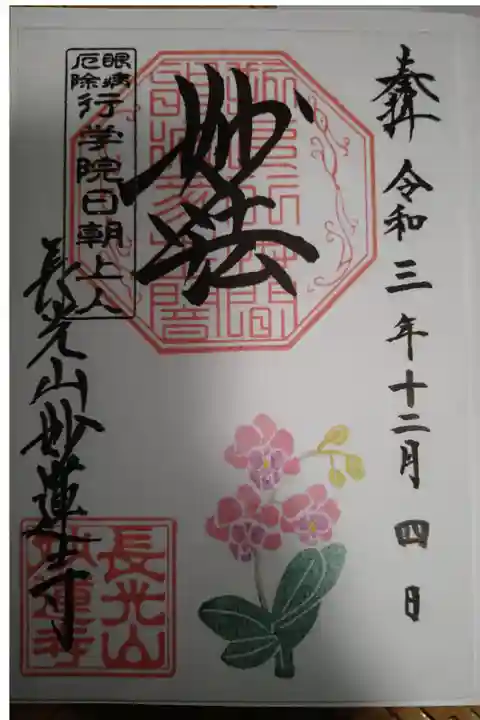 奉拝 令和三年十二月四日
妙法
眼病
厄除
行学院日朝上人
長光山妙蓮寺
長光山
妙蓮寺